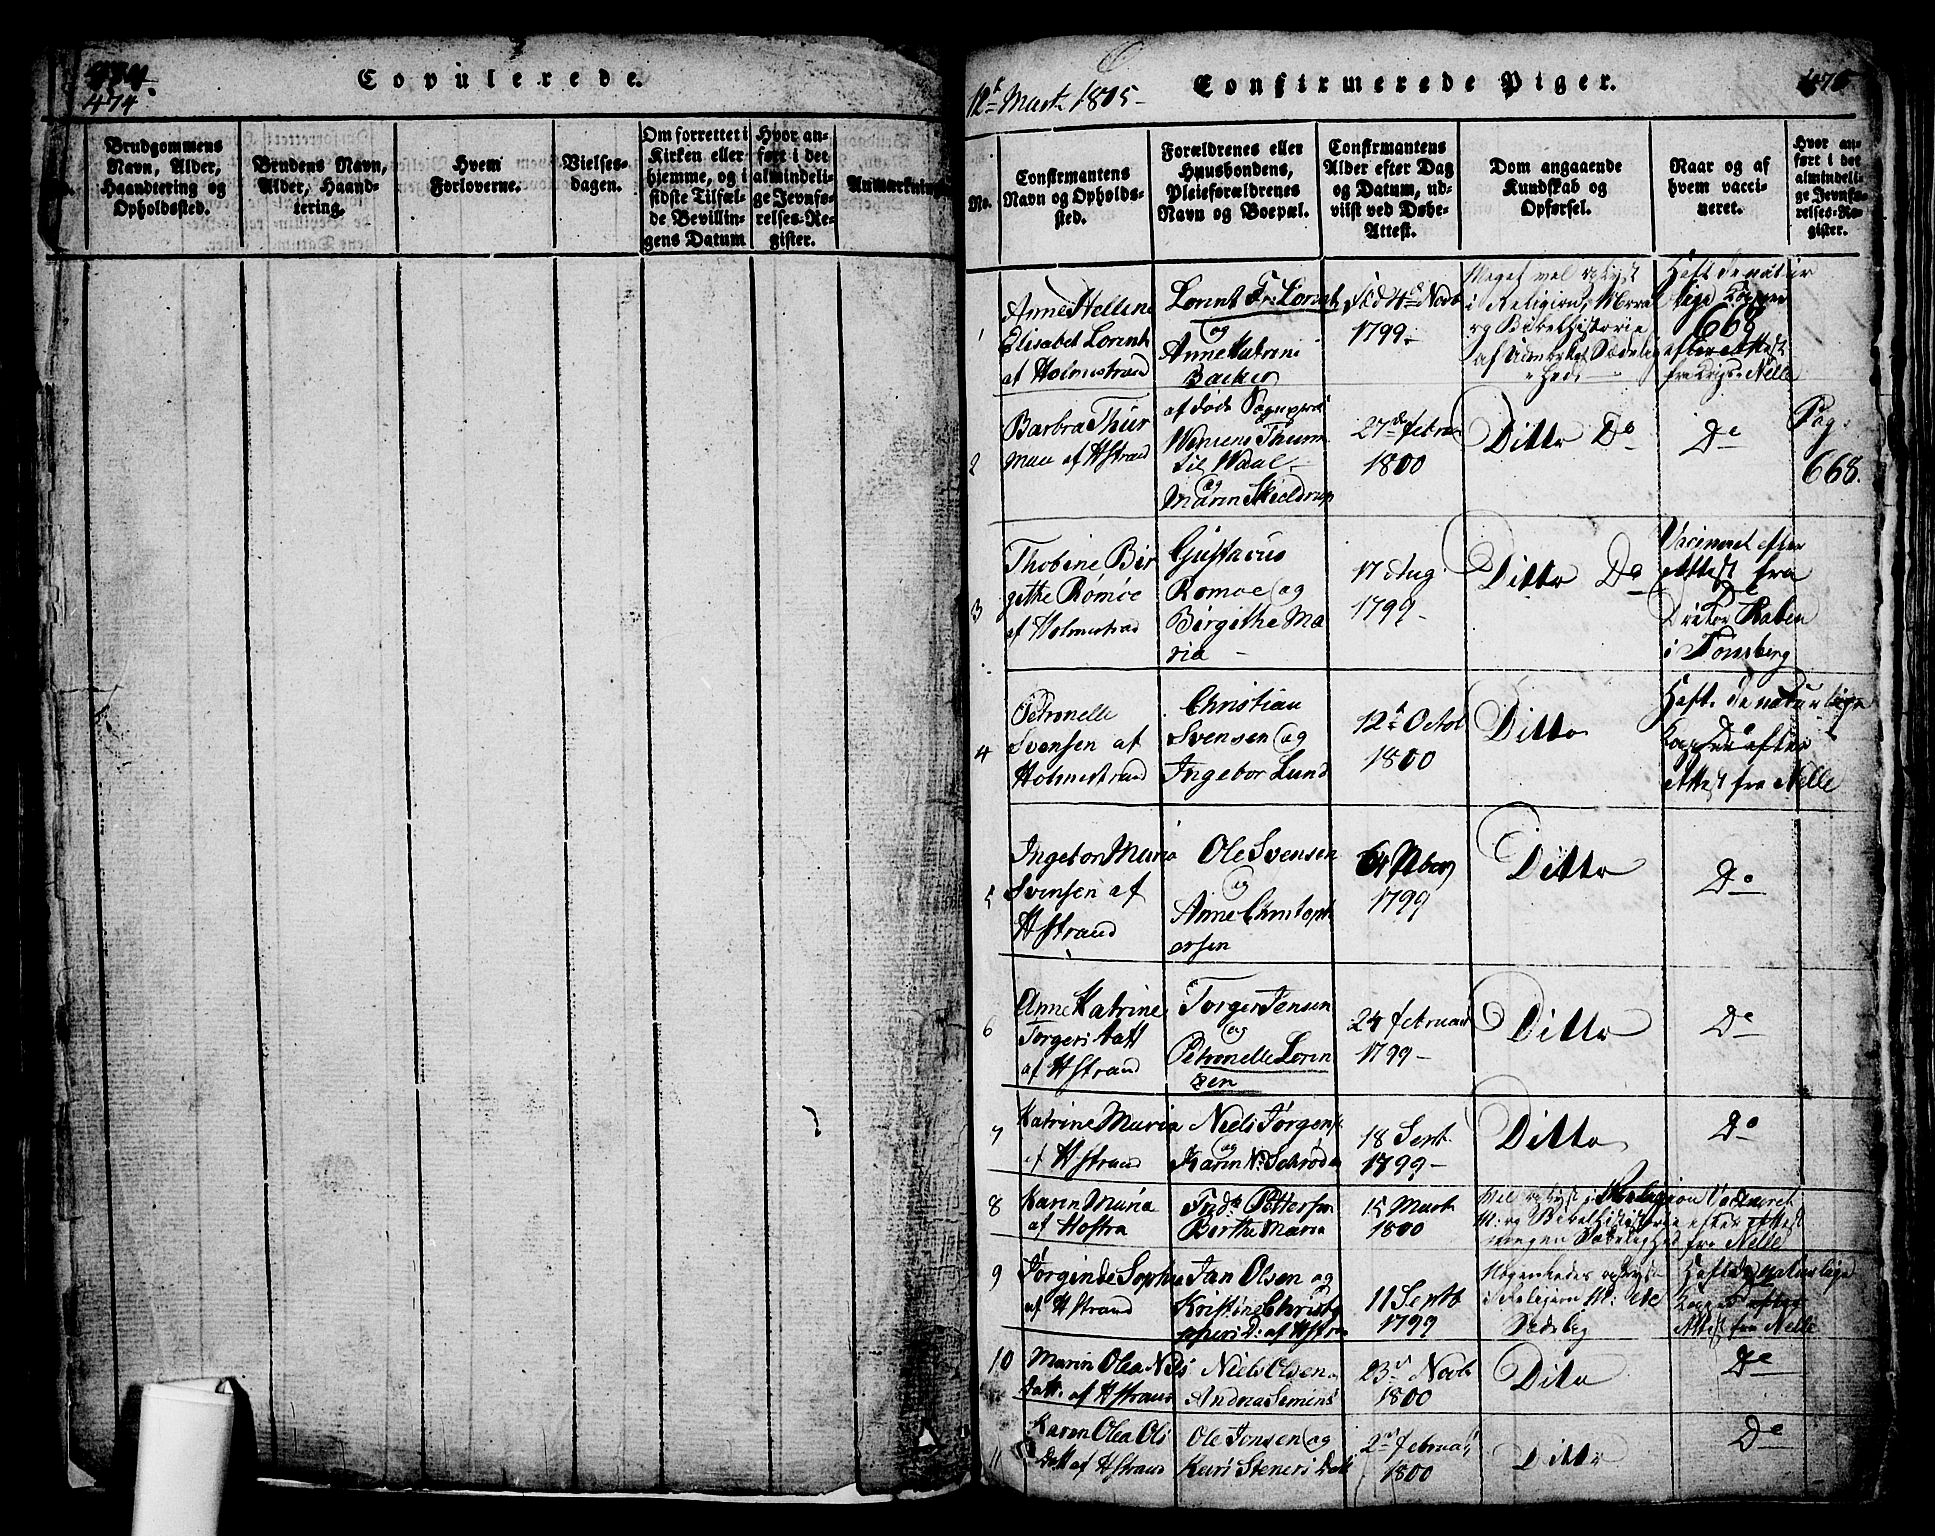 474.
474
Copulerede.
Brudgommens
Navn, Alder,
Haandtering og
Opholdssted.
Brudens Navn,
Alder, Haand-
tering.
Hvem
Forloverne.
Vielses-
dagen.
Om forrettet i
Kirken eller
hjemme, og i
sidste Tilfæl-
de Bevillin-
gens Datum
Hvor an-
ført i det
almindeli-
ge Jevnfø-
relses-Re-
gister.
Anmærkning
12t Marts 1815-
Confirmerede Piger.
475
No.
Confirmantens
Navn og Opholds-
sted.
Forældrenes eller
Huusbondens,
Pleieforældrenes
Navn og Boepæl.
Confirmantens
Alder efter Dag
og Datum, ud-
viist ved Døbe-
Attest.
Dom angaaende
Kundskab og
Opførsel.
Naar og af
hvem vacci-
neret.
Hvor an-
ført i det
almindeli-
ge Jevnfø-
relses-Re-
gister.
1
Anne Hellene
Elisabet Lorents
af Holmestrand
Lorents Fr: Lorents
og
Anne Katrine
Backer
Fød 4de Novb
1799.
Meget vel oplyst
i Religion, Moral
og Bibelhistorie
af Udmerket Sædelig
Hed
Haft de natur
lige Kopper
668
efter Attest
fra Nelle
2
Barbra Thur
man af Hstrand
af døde Sogneprest
Thurm
til Waal
og
Maren Skieldrup
27de febru
1800
Ditto Do
Do
Pag:
668.
3
Thobine Bir
gethe Romoe
af Holmestrad
Gustavus
Romoe og
Birgithe Ma
ria
17 Aug
1799
Ditto Do
Vacineret efter
Attest fra
Raben
i Tonsberg
4
Petronelle
Svensen af
Holmestrand
Christian
Svensen og
Ingebor Lund
12t Octob
1800
Ditto
Haft de naturlige
Kopper efter
Attest fra Nelle
5
Ingebor Maria
Svensen af
Hstrand
Ole Svensen
og
Anne Christoph
ersen
1799
Ditto
Do
6
Anne Katrine
Torgers Datt
af Hstrand
Torger Jensen
og
Petronelle Loren
zen
24 februar
1799
Ditto
Do
7
Katrine Maria
af Hstrand
Niels Jørgens
og
Karen N: Schrøder
18 Sept
1799
Ditto
Do
8
Karen Maria
af Hostra
Fredr Pettersen
Berthe Maria
15 Marts
1800
Vel oplyst i Religion
M: og Bibelhistorie
megen Sædelighed
Vacineret
efter Attest
fra Nelle
9
Jørginde Sophie
af Hstrand
Jan Olsen og
Kristine Christo
phers D: af Hstran
11 Septb
1799
Nogenledes oplyst
i Religion M:
Sædelig
Haft de naturlige
Kopper efter
Attest fra Nelle
10
Maren Olea Nils
Datt. af Hstrand
Niels Olsen
Andrea Simens
23 Novb
1800
Dito
Do
11
Karen Olea Ols
Datt af Hstrand
Ole Jonsen og
Kari Steners Datt
2de februar
1800
Ditto
Do